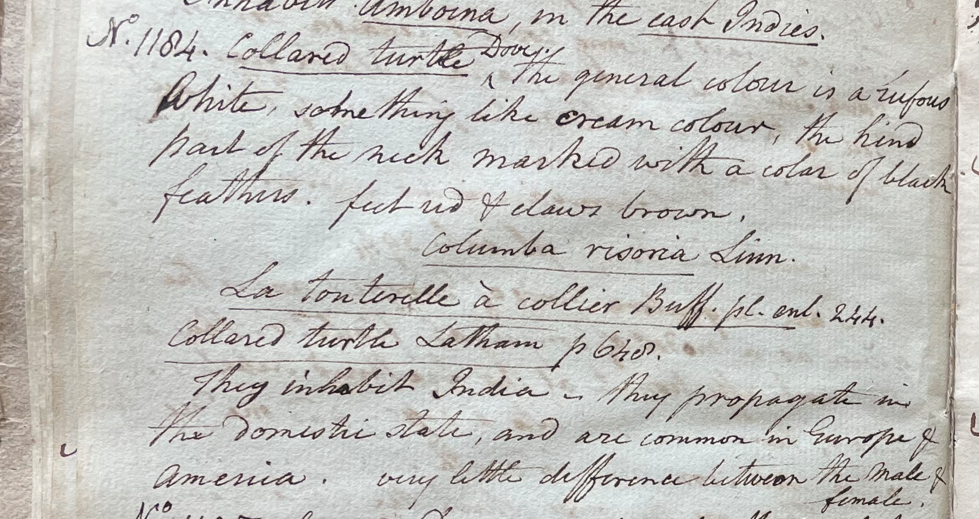 Inhabit Amboina, in the east Indies.
No. 1184. Collared turtle Dove. The general colour is a rufous
White, something like cream colour, the hind
part of the neck marked with a colar of black
feathers. feet red & claws brown.
Columba risoria Linn.
La tonterelle à collier Buff. pl. enl. 244.
Collared turtle Latham p 648.
They inhabit India - they propagate in
the domestic state, and are common in Europe &
America. very little difference between the male &
female.
No